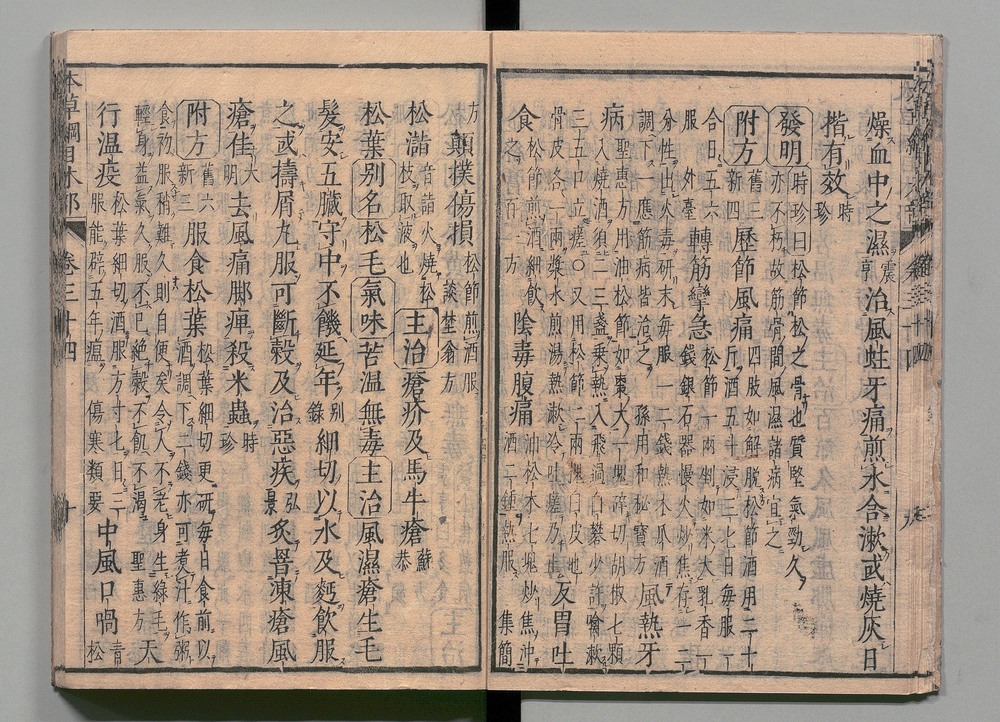 燥血中之濕震亨治風蛀牙痛煎水含漱或燒灰日
揩有效時珍
發明時珍曰松節松之骨也質堅氣勁久亦不朽故筋骨間風濕諸病宜之
附方舊三新四歷節風痛四肢如解脫松節酒用二十斤酒五斗浸三七日每服一
合日五六服外臺轉筋攣急松節一兩剉如米大乳香一錢銀石器慢火炒焦存一二
分性出火毒研末每服一二錢熱木瓜酒調下一應筋病皆治之孫用和秘寶方風熱牙
病聖惠方用油松節如棗大一塊碎切胡椒七顆入燒酒須二三盞乗熱入飛過白礬少許噙漱
三五口立瘥○又用松節二兩槐白皮地骨皮各一兩漿水煎湯熱漱冷吐瘥乃止反胃吐
食松節煎酒細飲之百一方陰毒腹痛油松木七塊炒焦冲酒二鍾熱服集簡
方顛撲傷損松節煎酒服談埜翁方
松㴰音詣火燒松枝取液也主治瘡疥及馬牛瘡蘇恭
松葉別名松毛氣味苦温無毒主治風濕瘡生毛
髮安五臟守中不饑延年別錄細切以水及麪飲服
之或擣屑丸服可斷穀及治惡疾弘景炙罯凍瘡風
瘡佳大明去風痛脚痺殺米蟲時珍
附方舊六新三服食松葉松葉細切更研每日食前以酒調下二錢亦可煮汁作粥
食初服稍難久則自便矣令人不老身生綠毛輕身益氣久服不已絕穀不飢不渴聖惠方天
行温疫松葉細切酒服方寸匕日三服能辟五年瘟傷寒類要中風口喎青松
本草綱目木部 卷三十四 十